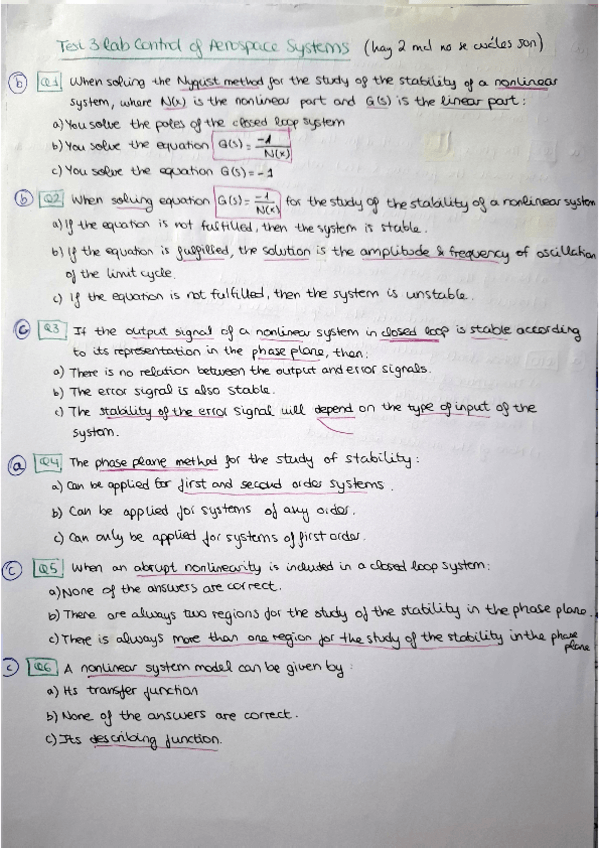 Test 3 lab Control of Aerospace Systems (hay 2 mal no se cuáles son)
b Q1 When solving the Nyqust method for the study of the stability of a nonlinear
system, where N(x) is the nonlinear part and G(s) is the linear part:
a) You solve the poles of the closed loop system
b) You solve the equation G(s) = -1/N(x)
c) You solve the equation G(s) = -1
b Q2 When solving equation G(s) = -1/N(x) for the study of the stability of a nonlinear system
a) If the equation is not fulfilled, then the system is stable.
b) If the equation is fulfilled, the solution is the amplitude & frequency of oscillation
of the limit cycle.
c) If the equation is not fulfilled, then the system is unstable.
c Q3 If the output signal of a nonlinear system in closed loop is stable according
to its representation in the phase plane, then:
a) There is no relation between the output and error signals.
b) The error signal is also stable.
c) The stability of the error signal will depend on the type of input of the
system.
a Q4 The phase plane method for the study of stability:
a) Can be applied for first and second order systems.
b) Can be applied for systems of any order.
c) Can only be applied for systems of first order.
c Q5 When an abrupt nonlinearity is included in a closed loop system:
a) None of the answers are correct.
b) There are always two regions for the study of the stability in the phase plane.
c) There is always more than one region for the study of the stability in the phase
plane
c Q6 A nonlinear system model can be given by:
a) Its transfer function
b) None of the answers are correct.
c) Its describing function.